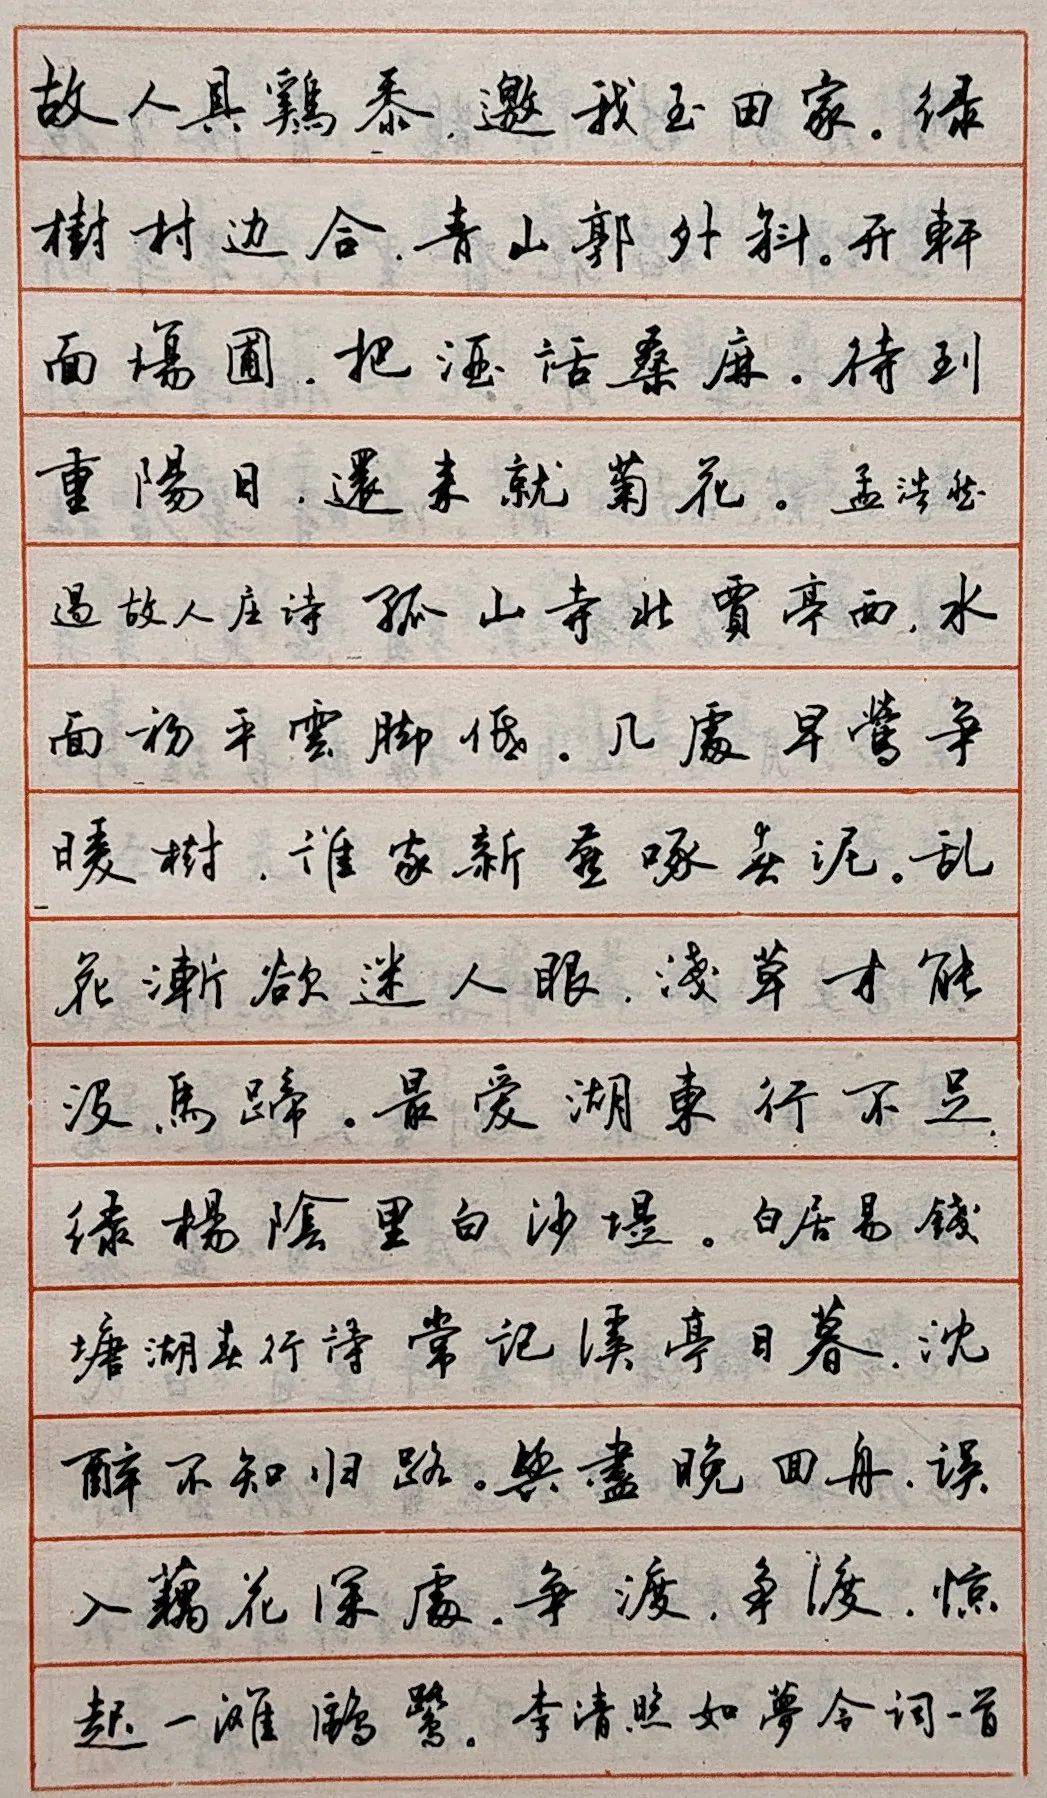 故人具鷄黍.邀我至田家。绿
樹村边合.青山郭外斜。开軒
面場圃.把酒话桑麻.待到
重陽日.還来就菊花。孟浩然
过故人庄诗 孤山寺北賈亭西.水
面初平雲脚低.几處早鶯争
暖樹.谁家新燕啄春泥。乱
花漸欲迷人眼.淺草才能
没馬蹄。最爱湖東行不足.
绿楊陰里白沙堤。白居易錢
塘湖春行诗 常记溪亭日暮.沈
醉不知归路。興盡晚回舟.误
入藕花深處.争渡.争渡.惊
起一滩鷗鷺。李清照如夢令词一首